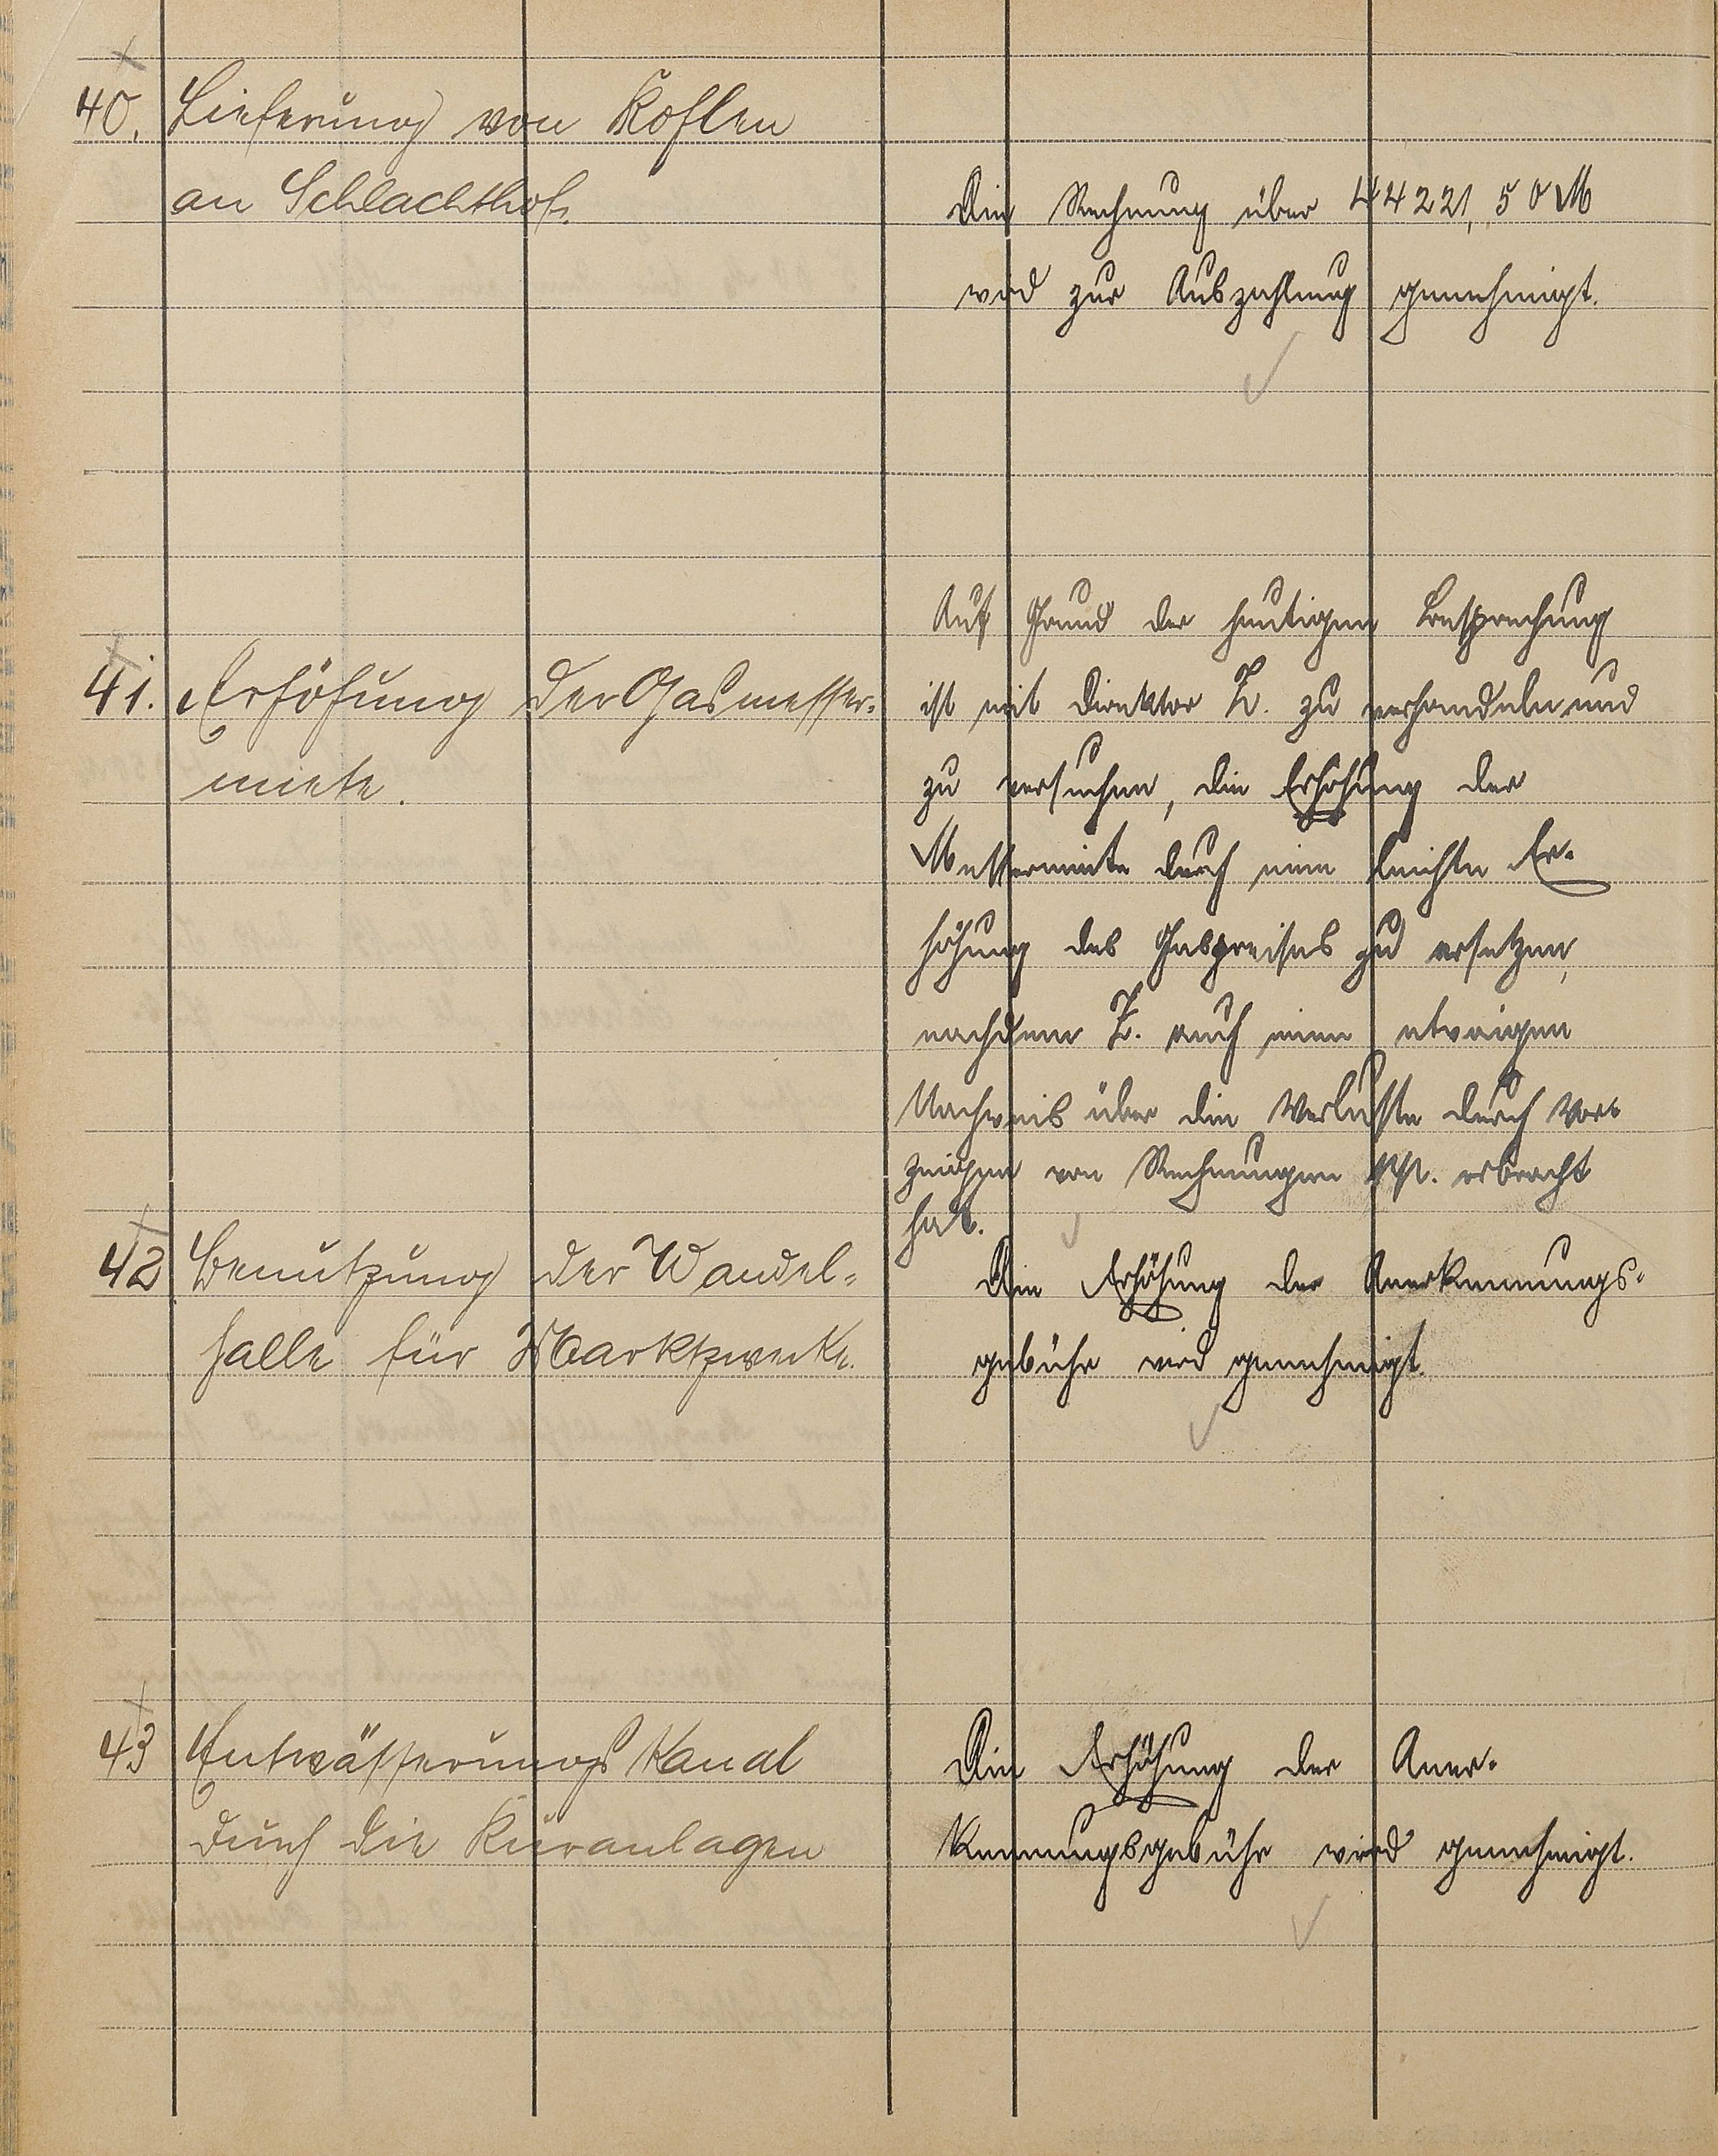 40. Lieferung von Kohlen
an Schlachthof.
Die Rechnung über 44221,50 M
wird zur Auszahlung genehmigt.
41. Erhöhung der Gasmesser-
miete.
Auf Grund der heutigen Besprechung
ist mit Direktor Z. zu verhandeln und
zu versuchen, die Erhöhung der
Messermiete durch eine leichte Er-
höhung des Gaspreises zu ersetzen,
nachdem Z. auch einen etwaigen
Nachweis über die Verluste durch Vor-
zeigen von Rechnungen pp. erbracht
hat.
42 Benutzung der Wandel-
halle für Marktzwecke.
Die Erhöhung der Anerkennungs-
gebühr wird genehmigt.
43 Entwässerungs Kanal
durch die Kuranlagen
Die Erhöhung der Aner-
kennungsgebühr wird genehmigt.